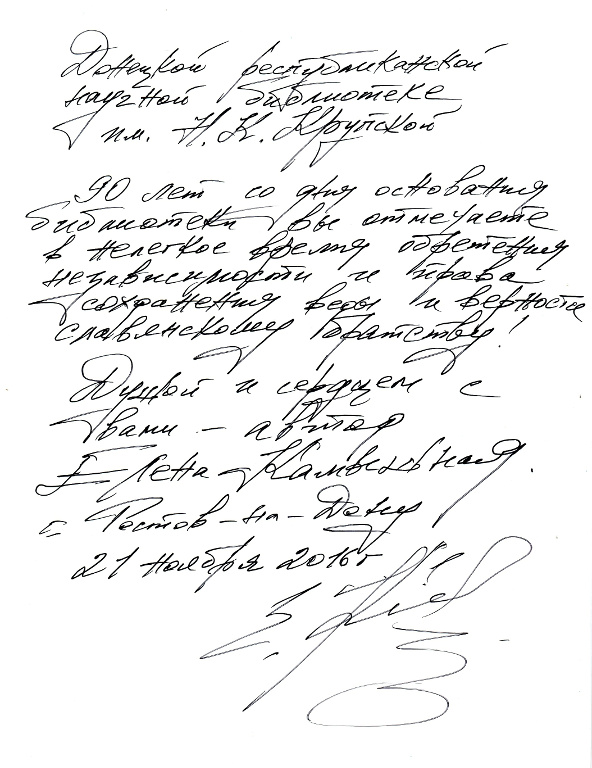 Донецкой республиканской
научной библиотеке
им. Н. К. Крупской
90 лет со дня основания
библиотеки вы отмечаете
в нелегкое время обретения
независимости и права
сохранения веры и верности
славянскому братству!
Душой и сердцем с
вами – автор
Елена
г. Ростов-на-Дону
21 ноября 2016 г